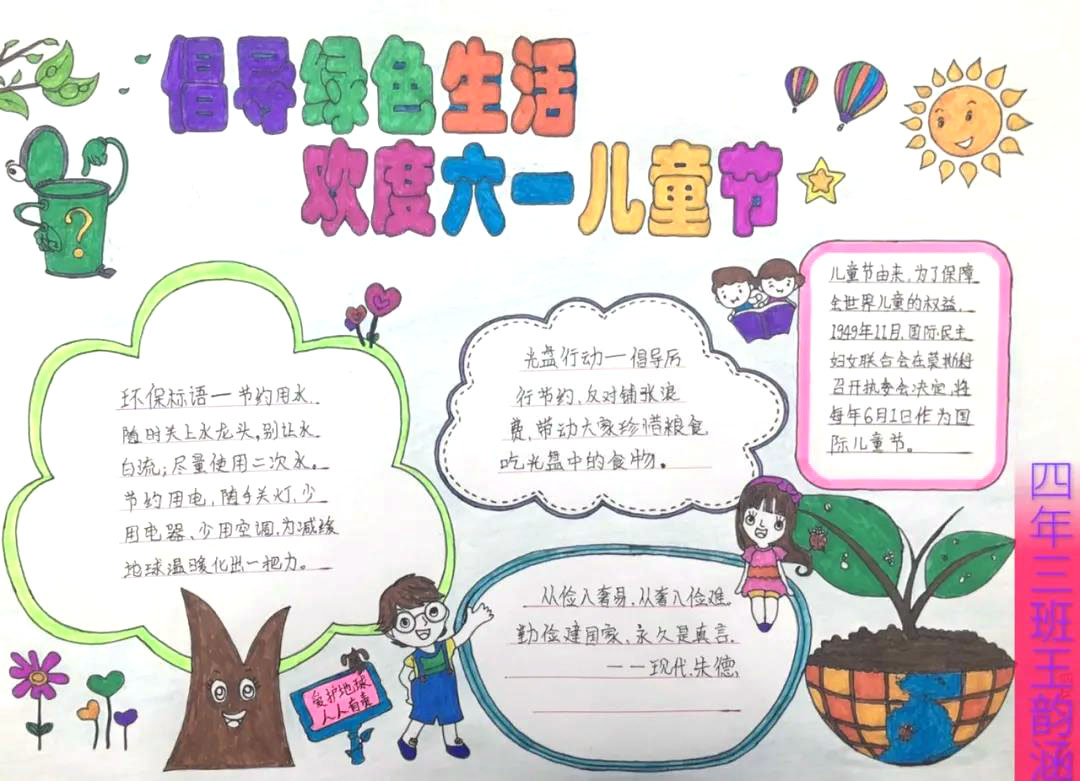 倡导绿色生活
欢度六一儿童节
儿童节由来,为了保障
全世界儿童的权益,
1949年11月,国际民主
妇女联合会在莫斯科
召开执委会决定,将
每年6月1日作为国
际儿童节。
光盘行动一倡导厉
行节约,反对铺张浪
费,带动大家珍惜粮食
吃光盘中的食物。
环保标语一节约用水,
随时关上水龙头,别让水
白流;尽量使用二次水。
节约用电,随手关灯,少
用电器、少用空调,为减缓
地球温暖化出一把力。
从俭入奢易,从奢入俭难,
勤俭建国家、永久是真言,
——现代.朱德.
爱护地球
人人有责
?
四年三班王韵涵